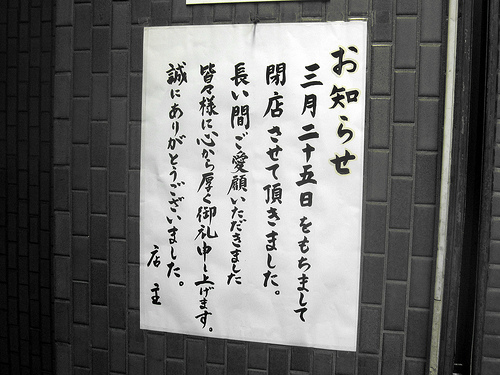 お知らせ
三月二十五日をもちまして
閉店させて頂きました。
長い間ご愛顧いただきました
皆々様に心から厚く御礼申し上げます。
誠にありがとうございました。
店主